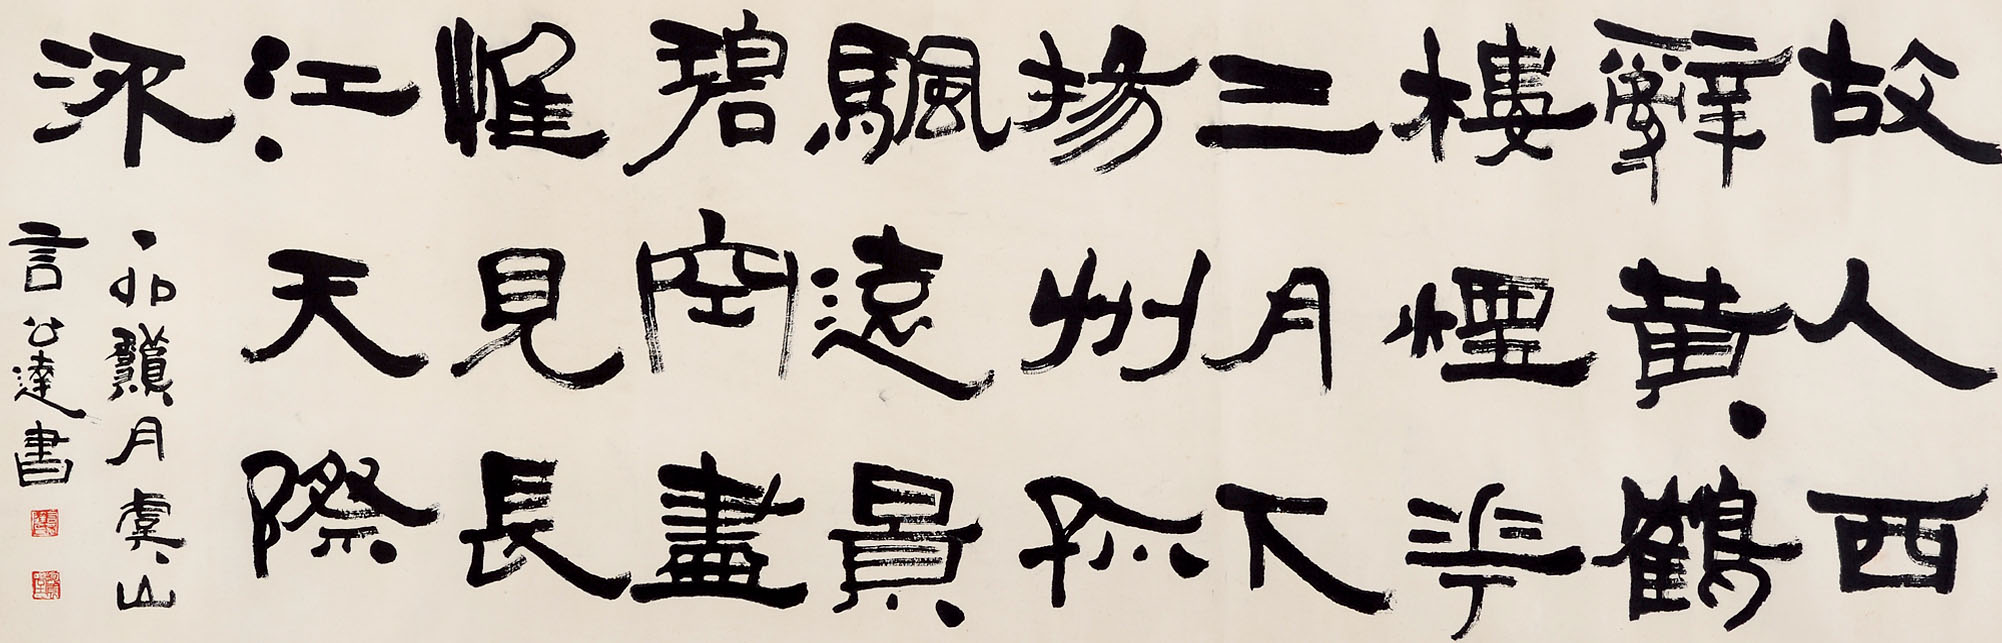 故人西
辭黃鶴
樓煙華
三月下
揚州孤
颿遠景
碧空盡
惟見長
江天際
流
丁卯臘月虞山
言公達書